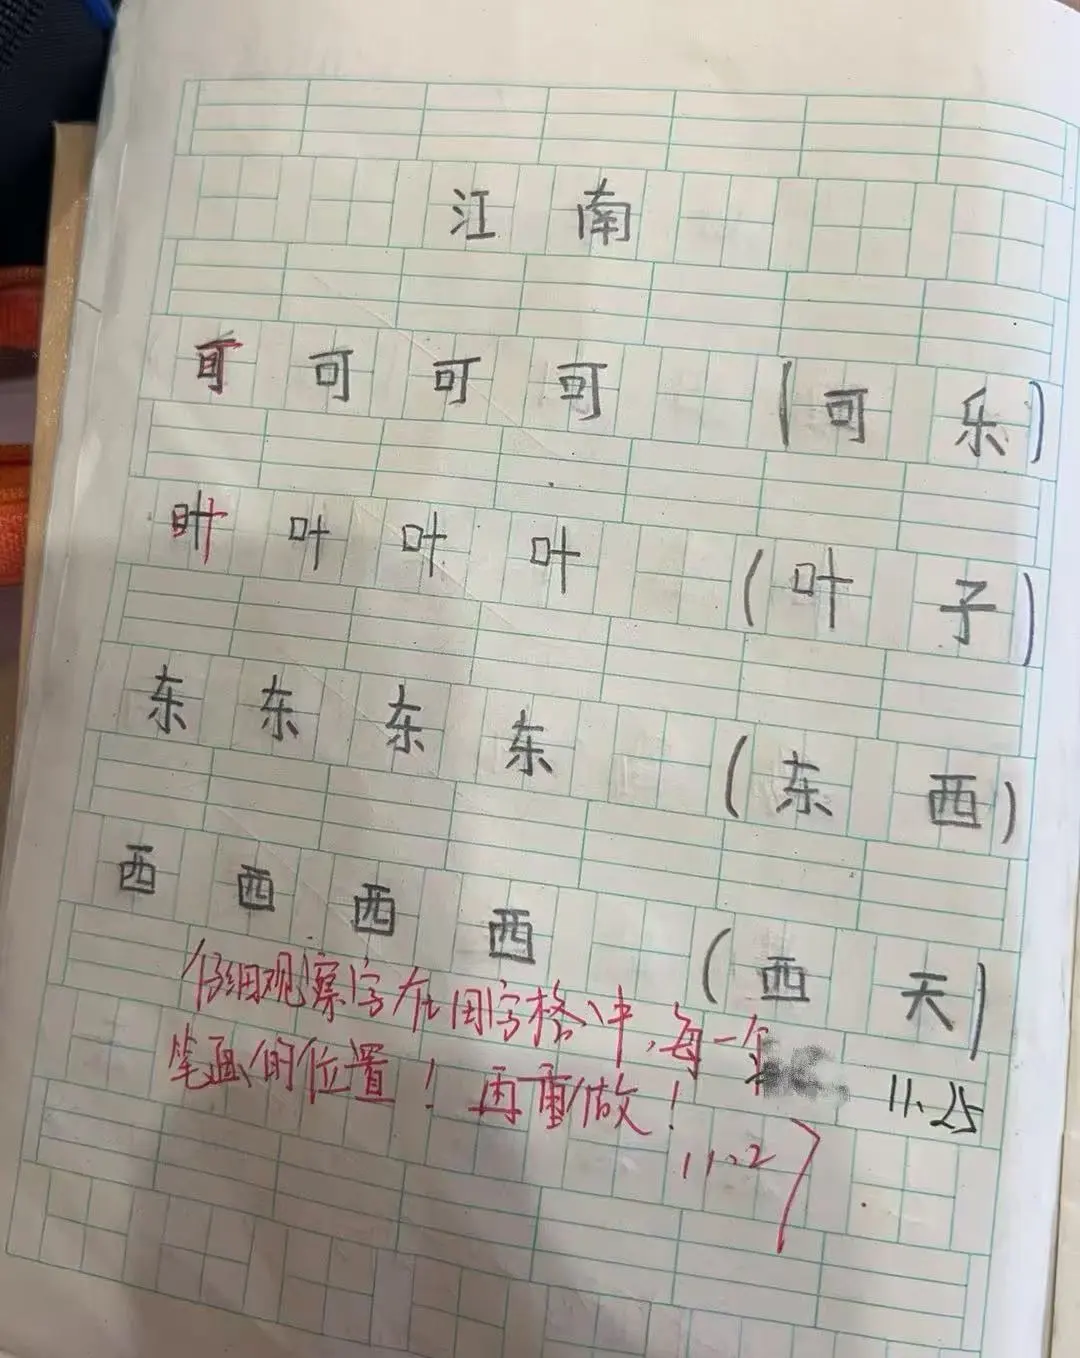 江南
可 可 可 可 (可乐)
叶 叶 叶 叶 (叶子)
东 东 东 东 (东西)
西 西 西 西 (西天)
仔细观察字在田字格中,每一个
笔画的位置!再重做!
11.25
11.27